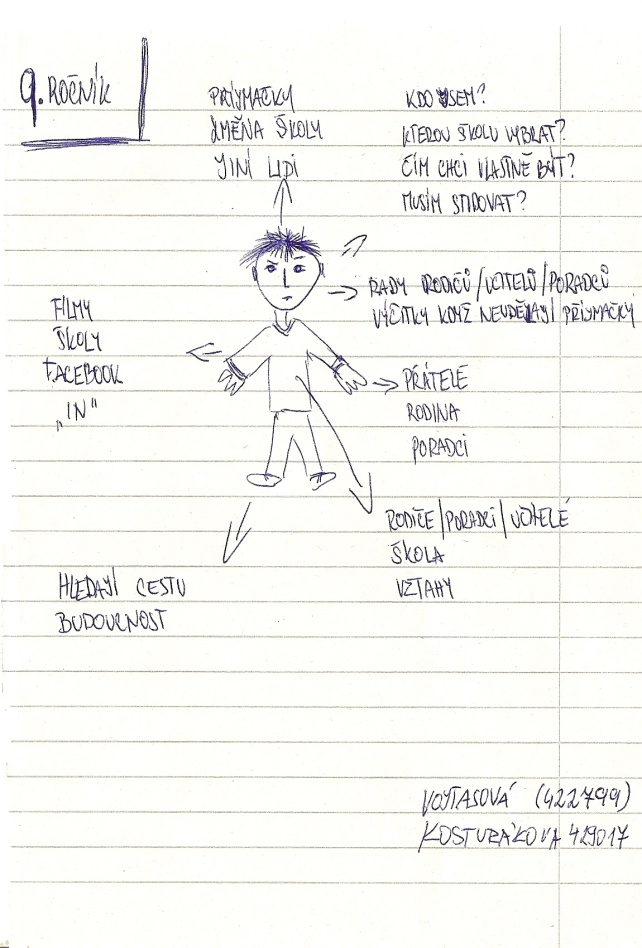 9. ROČNÍK
PŘIJMAČKY
ZMĚNA ŠKOLY
JINÍ LIDI
KDO JSEM?
KTEROU ŠKOLU VYBRAT?
ČÍM CHCI VLASTNĚ BÝT?
MUSÍM STUDOVAT?
RADY RODIČŮ/UČITELŮ/PORADCŮ
VÝČITKY KDYŽ NEUDĚLAJÍ PŘIJMAČKY
FILMY
ŠKOLY
FACEBOOK
„IN"
PŘÁTELÉ
RODINA
PORADCI
RODIČE/PORADCI/UČITELÉ
ŠKOLA
VZTAHY
HLEDAJÍ CESTU
BUDOUCNOST
VOJTASOVÁ (422799)
KOSTURÁKOVÁ 429017